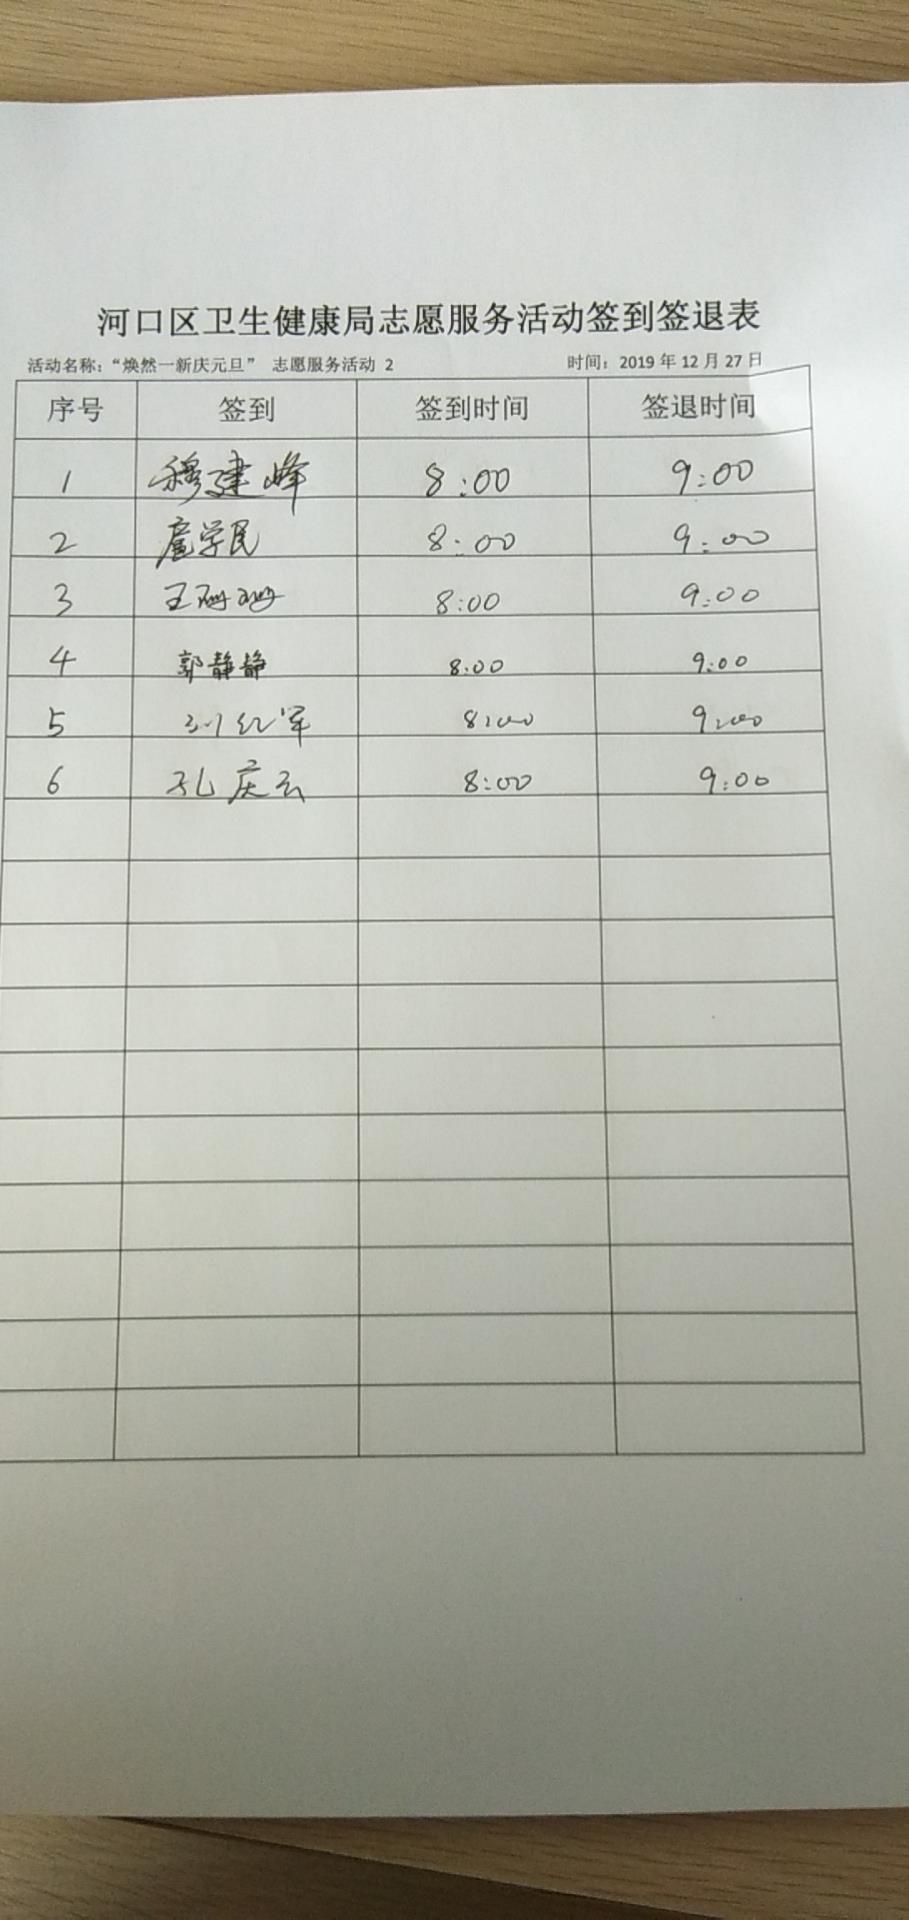 河口区卫生健康局志愿服务活动签到签退表
活动名称：“焕然一新庆元旦” 志愿服务活动 2 时间：2019 年 12 月 27 日
序号 签到 签到时间 签退时间
1 穆建峰 8:00 9:00
2 扈学民 8:00 9:00
3 王珊珊 8:00 9:00
4 郭静静 8:00 9:00
5 刘红军 8:00 9:00
6 孔庆云 8:00 9:00